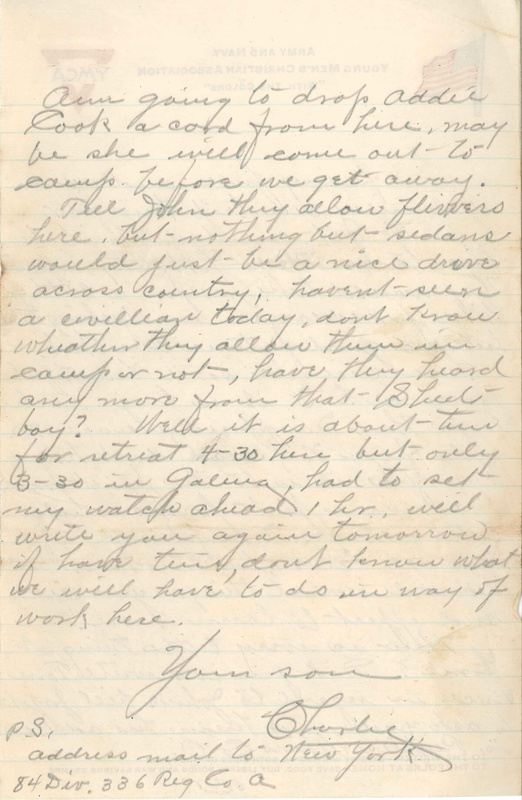 Am going to drop Addie
Cook a card from here, may
be she will come out to
camp before we get away.
Tell John they allow flivvers
here, but nothing but sedans
would just be a nice drive
across country, havent seen
a civillian today, dont know
wheather they allow them in
camp or not, have they heard
any more from that
boy? Well it is about time
for retreat 4-30 here but only
3-30 in Galena, had to set
my watch ahead 1 hr, will
write you again tomorrow
if have time, dont know what
we will have to do in way of
work here.
Your son
Charlie
P.S.
address mail to New York
84 Div. 336 Reg Co. A
ARMY AND NAVY
YOUNG MEN'S CHRISTIAN ASSOCIATION
YMCA